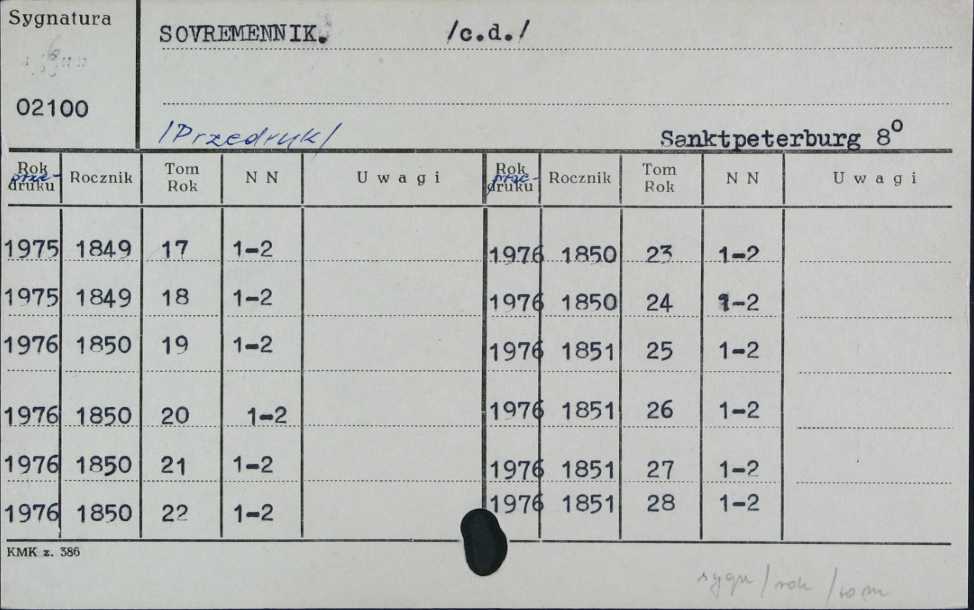 Sygnatura
SOVREMENNIK. /c.d./
02100
/Przedruk/
Sanktpeterburg 8o
Rok prze-druku Rocznik Tom Rok N N Uwagi Rok prze-druku Rocznik Tom Rok N N Uwagi
1975 1849 17 1-2 1976 1850 23 1-2
1975 1849 18 1-2 1976 1850 24 1-2
1976 1850 19 1-2 1976 1851 25 1-2
1976 1850 20 1-2 1976 1851 26 1-2
1976 1850 21 1-2 1976 1851 27 1-2
1976 1850 22 1-2 1976 1851 28 1-2
KMK z. 386
sygn/rok/tom